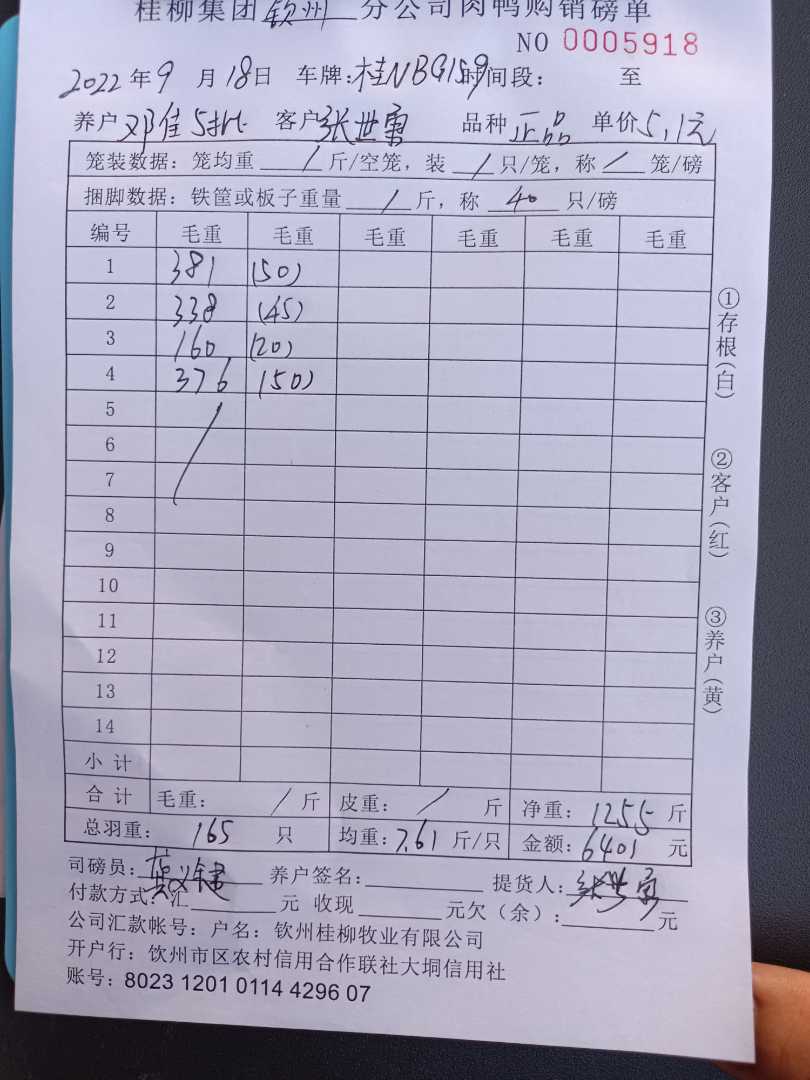 桂柳集团 钦州 分公司肉鸭购销磅单
NO 0005918
2022年9月18日 车牌:桂NBG159 时间段: 至
养户 邓佳 客户 张世勇 品种 正品 单价 5.1元
笼装数据: 笼均重 / 斤/空笼, 装 / 只/笼, 称 / 笼/磅
捆脚数据: 铁筐或板子重量 / 斤, 称 40 只/磅
编号 毛重 毛重 毛重 毛重 毛重 毛重
1 381 (50)
2 338 (45)
3 160 (20)
4 376 (50)
5
6
7
8
9
10
11
12
13
14
小计
合计 毛重: / 斤 皮重: / 斤 净重: 1255 斤
总羽重: 165 只 均重: 7.61 斤/只 金额: 6401 元
司磅员: 养户签名: 提货人: 张世勇
付款方式: 汇 元 收现 元欠(余): 元
公司汇款帐号: 户名: 钦州桂柳牧业有限公司
开户行: 钦州市区农村信用合作联社大垌信用社
账号: 8023 1201 0114 4296 07
①存根(白)
②客户(红)
③养户(黄)